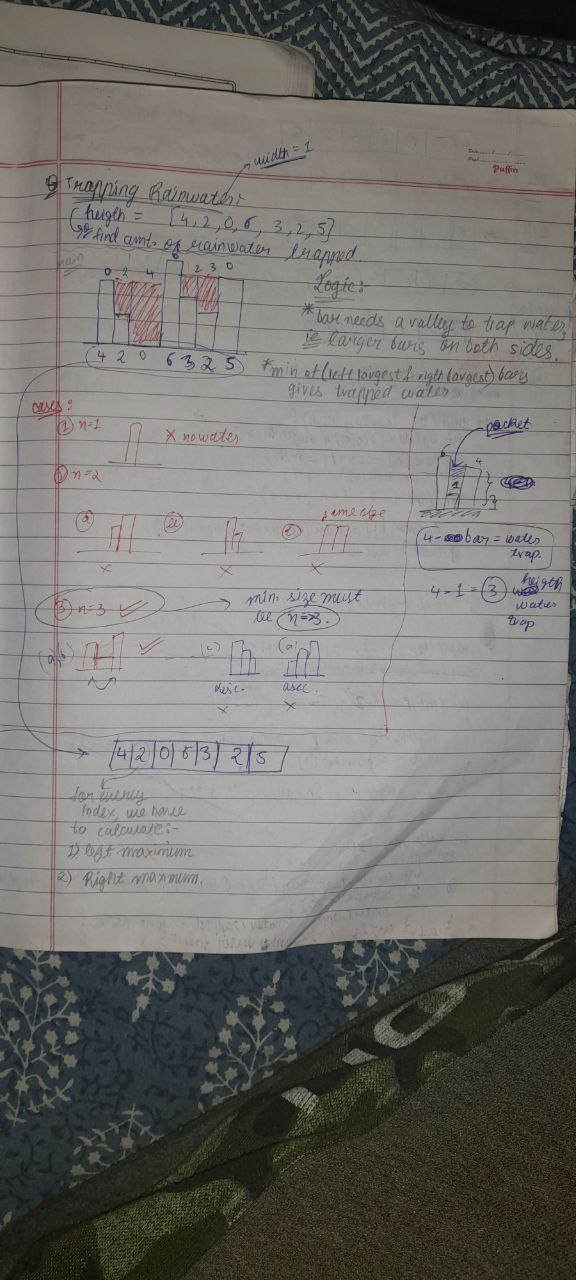 Puffin
width = 1
Q Trapping Rainwater:-
heigth = [4, 2, 0, 6, 3, 2, 5]
find amt. of rainwater trapped.
rain
0 2 4 6 2 3 0
4 2 0 6 3 2 5
Logic:-
* bar needs a valley to trap water,
ie larger bars on both sides.
* min of (left largest & right largest) bars
gives trapped water
cases:
① n=1
X no water
② n=2
same size
x x x
③ n=3
min. size must
be n=3.
desc. asec.
x x
pocket
6 4
1
4 - bar = water
trap.
4 - 1 = 3 heigth
water
trap
4 2 0 6 3 2 5
for every
index, we have
to calculate:-
1) left maximum
2) Right maximum.